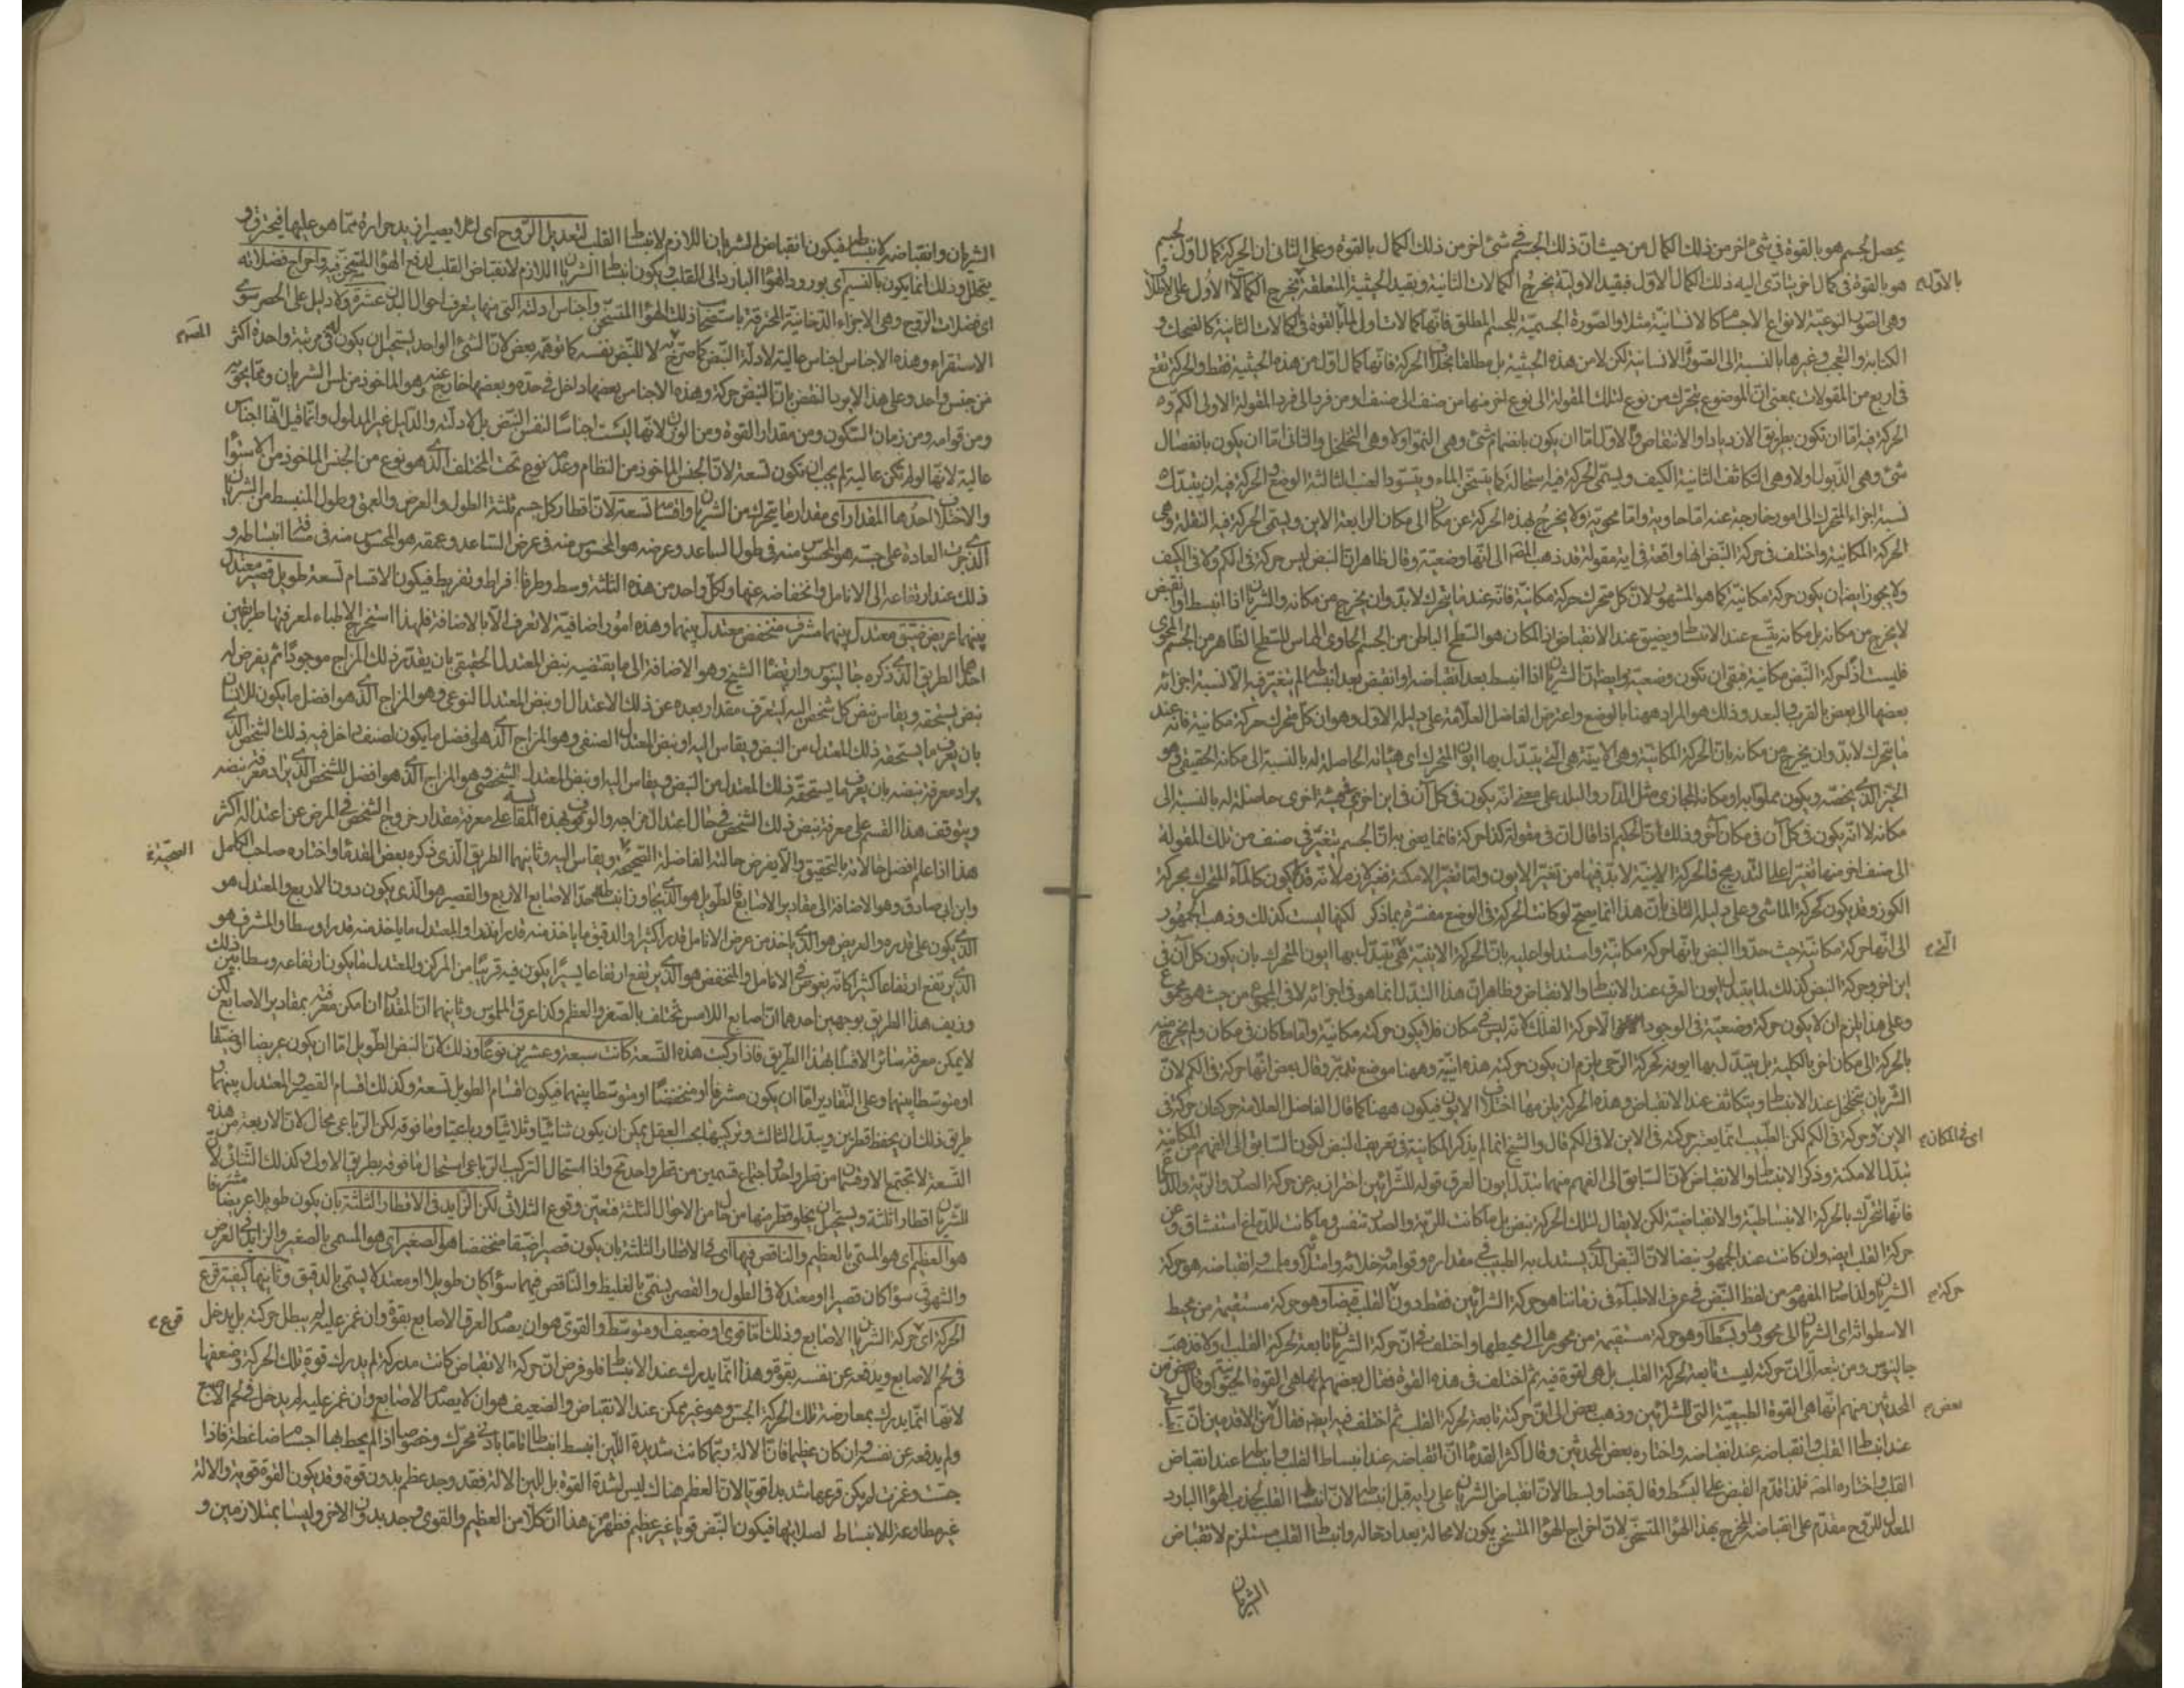 يحصل لجسم هو بالقوة في شئ اخر من ذلك الكمال من حيث ان ذلك الجسم في شئ اخر من ذلك الكمال بالقوة وعلى الثاني ان الحركة كمال اول لجسم
هو بالقوة في كمال اخر يتادى اليه ذلك الكمال الاول فبقيد الاولية يخرج الكمالات الثانية وبقيد الحيثية المتعلقة يخرج الكمالات الاول على الاطلاق
بالاول
وهي الصور النوعية لانواع الاجسام كالانسانية مثلا والصورة الجسمية للجسم المطلق فانها كمالات اول لما بالقوة في كمالات الثانية كالضحك و
الكتابة والتعجب وغيرها بالنسبة الى الصورة الانسانية لكن لا من هذه الحيثية بل مطلقا بخلاف الحركة فانها كمال اول من هذه الحيثية فقط والحركة تقع
في اربع من المقولات بمعنى ان الموضوع يتحرك من نوع لتلك المقولة الى نوع اخر منها من صنف الى صنف او من فرد الى فرد المقولة الاولى الكم و
الحركة فيه اما ان تكون بطريق الازدياد او الانتقاص والاول اما ان يكون بانضمام شئ وهي النمو او لا وهي التخلخل والثاني اما ان يكون بانفصال
شئ وهي الذبول او لا وهي التكاثف الثانية الكيف ويسمى الحركة فيه استحالة كما يتسخن الماء ويتسود العنب الثالثة الوضع والحركة فيه ان يتبدل
نسبة اجزاء المتحرك الى امور خارجة عنه اما حاوية واما محوية ولا يخرج بهذه الحركة عن مكان الى مكان الرابعة الاين ويسمى الحركة فيه النقلة وهي
الحركة المكانية واختلف في حركة النبض انها واقعة في اية مقولة فذهب المصنف الى انها وضعية وقال ظاهر ان النبض ليس حركة في الكم ولا في الكيف
ولا يجوز ايضا ان يكون حركة مكانية كما هو المشهور لان كل متحرك حركة مكانية فانه عندما يتحرك لا بد وان يخرج من مكانه والشريان اذا انبسط او انقبض
لا يخرج من مكانه بل مكانه يتسع عند الانبساط ويضيق عند الانقباض اذ المكان هو السطح الباطن من الجسم الحاوي المماس للسطح الظاهر من الجسم المحوي
فليست اذا حركة النبض مكانية فبقي ان تكون وضعية وايضا ان الشريان اذا انبسط بعد انقباضه او انقبض بعد انبساطه لم يتغير فيه الا نسبة اجزائه
بعضها الى بعض بالقرب والبعد وذلك هو المراد ههنا بالوضع واعترض الفاضل العلامة على دليله الاول وهو ان كل متحرك حركة مكانية فانه عند
ما يتحرك لا بد وان يخرج من مكانه بان الحركة المكانية وهي الاينية هي التي يتبدل بها اين المتحرك اي هيئاته الحاصلة له بالنسبة الى مكانه الحقيقي وهو
الحيز الذي يخصه ويكون مملوا به او مكانه المجازي مثل الدار والبلد على معنى انه يكون في كل آن في اين اخر اي هيئة اخرى حاصلة له بالنسبة الى
مكانه لا انه يكون في كل آن في مكان آخر وذلك ان الحكيم اذا قال ان في مقولة كذا حركة فانما يعني به ان الجسم يتغير في صنف من تلك المقولة
الى صنف اخر منها تغيرا على التدريج فالحركة الاينية لا بد فيها من تغير الايون واما تغير الامكنة فغير لازم لانه قد يكون كالماء المتحرك بحركة
الكوز وقد يكون كحركة الماشي وعلى دليله الثاني بان هذا انما يصح لو كانت الحركة في الوضع مفسرة بما ذكر لكنها ليست كذلك وذهب الجمهور
الى انها حركة مكانية حيث حدوا النبض بانها حركة مكانية واستدلوا عليه بان الحركة الاينية هي يتبدل بها ايون المتحرك بان يكون كل آن في
التي
اين اخر وحركة النبض كذلك لما يتبدل ايون العرق عند الانبساط والانقباض وظاهر ان هذا التبدل انما هو في اجزائه لا في المجموع من حيث هو مجموع
وعلى هذا يلزم ان لا يكون حركة وضعية في الوجود الا حركة الفلك لانه ليس في مكان فلا يكون حركته مكانية واما ما كان في مكان ولم يخرج منه
بالحركة الى مكان اخر بالكلية بل يتبدل بها ايونه كحركة الرحى يلزم ان يكون حركته هذه اينية وههنا موضع تدبر وقال بعض انها حركة في الكم لان
الشريان يتخلخل عند الانبساط ويتكاثف عند الانقباض وهذه الحركة يلزمها اختلاف الايون فيكون ههنا كما قال الفاضل العلامة حركتان حركة في
الاين وحركة في الكم لكن الطبيب انما يعتبر حركته في الاين لا في الكم قال والشيخ انما لم يذكر المكانية في تعريف النبض لكون السابق الى الفهم من المكانية
اي في المكان
تبدل الامكنة وذكر الانبساط والانقباض لان السابق الى الفهم منهما تبدل ايون العرق قوله للشرايين احتراز به عن حركة الصدر والرية والدماغ
فانها تتحرك بالحركة الانبساطية والانقباضية لكن لا يقال لتلك الحركة نبض بل ما كانت للرية والصدر تنفس وما كانت للدماغ استنشاق وعن
حركة القلب ايضا وان كانت عند الجمهور نبضا لان النبض الذي يستدل به الطبيب في مقداره وقوامه وخلائه وامتلائه وملمسه وانقباضه هو حركة
الشريان ولذا صار المفهوم من لفظ النبض في عرف الاطباء في زماننا هو حركة الشرايين فقط دون القلب قبضا وهو حركة مستقيمة من محيط
حركة
الاسطوانة اي الشريان الى محورها وبسطا وهو حركة مستقيمة من محورها الى محيطها واختلف في ان حركة الشريان تابعة لحركة القلب او لا فذهب
جالينوس ومن تبعه الى ان حركته ليست تابعة لحركة القلب بل هي لقوة فيه ثم اختلف في هذه القوة فقال بعضهم انها هي القوة الحيوانية وقال بعض من
المحدثين منهم انها هي القوة الطبيعية التي للشرايين وذهب بعض الى ان حركته تابعة لحركة القلب ثم اختلف فيه ايضا فقال من الاقدمين ان
بعض
عند انبساط القلب وانقباضه عند انقباضه واختاره بعض المحدثين وقال اكثر القدماء ان انقباضه عند انبساط القلب وانبساطه عند انقباض
القلب واختاره المصنف فلذا قدم القبض على البسط وقال قبضا وبسطا لان انقباض الشريان على رايه قبل انبساطه لان انبساط القلب لجذب الهواء البارد
المعدل للروح مقدم على انقباضه المخرج بهذا الهواء المتسخن لان اخراج الهواء المتسخن يكون لا محالة بعد ادخاله وانبساط القلب مستلزم لانقباض
الشريان
الشريان وانقباضه لانبساطه فيكون انقباض الشريان اللازم لانبساط القلب لتعديل الروح اي لئلا يصير ازيد حرارة مما هو عليها فيحترق و
يتحلل وذلك انما يكون بالنسيم اي بورود الهواء البارد الى القلب ويكون انبساط الشريان اللازم لانقباض القلب لدفع الهواء المتسخن فيه واخراج فضلاته
اي فضلات الروح وهي الاجزاء الدخانية المحترقة باستصحاب ذلك الهواء المتسخن واجناس ادلته التي منها يتعرف احوال البدن عشرة ولا دليل على الحصر سوى
الاستقراء وهذه الاجناس اجناس عالية لادلة النبض كما صرح به لا للنبض نفسه كما توهمه بعض لان الشئ الواحد يستحيل ان يكون له في مرتبة واحدة اكثر
المصنف
من جنس واحد وعلى هذا الايراد النقض بان النبض حركة وهذه الاجناس بعضها داخل في حده وبعضها خارج عنه وهو الماخوذ من لمس الشريان ومما يحويه
ومن قوامه ومن زمان السكون ومن مقدار القوة ومن الوزن لانها ليست اجناسا لنفس النبض بل لادلته والدليل غير المدلول وانما قيل انها اجناس
عالية لانها لو لم تكن عالية لم يجب ان تكون تسعة لان الجنس الماخوذ من النظام وعدمه نوع تحت المختلف الذي هو نوع من الجنس الماخوذ من الاستواء
والاختلاف احدها المقدار اي مقدار ما يتحرك من الشريان واقسامه تسعة لان اقطار كل جسم ثلثة الطول والعرض والعمق وطول المنبسط من الشريان
الذي جرت العادة على جسه هو المحسوس منه في طول الساعد وعرضه هو المحسوس منه في عرض الساعد وعمقه هو المحسوس منه في مسافة انبساطه و
ذلك عند ارتفاعه الى الانامل وانخفاضه عنها ولكل واحد من هذه الثلثة وسط وطرفا افراط وتفريط فيكون الاقسام تسعة طويل قصير معتدل
بينهما عريض ضيق معتدل بينهما مشرف منخفض معتدل بينهما وهذه امور اضافية لا تعرف الا بالاضافة فلهذا استخرج الاطباء لمعرفتها طريقين
احدهما الطريق الذي ذكره جالينوس وارتضاه الشيخ وهو الاضافة الى ما يقتضيه نبض المعتدل الحقيقي بان يفدر ذلك المزاج موجودا ثم يفرض له
نبض يستحقه ويقاس نبض كل شخص اليه ليتعرف مقدار بعده عن ذلك الاعتدال او نبض المعتدل النوعي وهو المزاج الذي هو افضل ما يكون للانسان
بان يعرف ما يستحقه ذلك المعتدل من النبض ويقاس اليه او نبض المعتدل الصنفي وهو المزاج الذي هو افضل ما يكون لصنف داخل فيه ذلك الشخص الذي
يراد معرفة نبضه بان يعرف ما يستحقه ذلك المعتدل من النبض ويقاس اليه او نبض المعتدل الشخصي وهو المزاج الذي هو افضل للشخص الذي يراد معرفة نبضه
ويتوقف هذا القسم على معرفة نبض ذلك الشخص في حال اعتدال مزاجه والوقوف بهذه المقايسة على معرفة مقدار خروج الشخص في المرض عن اعتداله اكثر
هذا اذا علم افضل حالاته بالتحقيق والا يفرض حالته الفاضلة الصحيحة ويقاس اليه وثانيهما الطريق الذي ذكره بعض القدماء واختاره صاحب الكامل
الصحية
وابن ابي صادق وهو الاضافة الى مقادير الاصابع فالطويل هو الذي يجاوز انبساطه حد الاصابع الاربع والقصير هو الذي يكون دون الاربع والمعتدل هو
الذي يكون على قدره والعريض هو الذي ياخذ من عرض الانامل قدرا كثيرا والدقيق ما ياخذ منه قدرا نزرا والمعتدل ما ياخذ منه قدرا وسطا والمشرف هو
الذي يرتفع ارتفاعا كثيرا كانه يغوص في الانامل والمنخفض هو الذي يرتفع ارتفاعا يسيرا يكون فيه قريبا من المركز والمعتدل ما يكون ارتفاعه وسطا بين ذلك
وزيف هذا الطريق بوجهين احدهما ان اصابع اللامس تختلف بالصغر والعظم وكذا عرق الملموس وثانيهما ان المقدار ان امكن معرفته بمقادير الاصابع لكن
لا يمكن معرفة سائر الاقسام بهذا الطريق فاذا ركبت هذه التسعة كانت سبعة وعشرين نوعا وذلك لان النبض الطويل اما ان يكون عريضا او ضيقا
او متوسطا بينهما وعلى التقادير اما ان يكون مشرفا او منخفضا او متوسطا بينهما فيكون اقسام الطويل تسعة وكذلك اقسام القصير والمعتدل بينهما
طريق ذلك ان يحفظ قطرين ويبدل الثالث وتركيبها بحسب العقل يمكن ان يكون ثنائيا وثلاثيا ورباعيا وما فوقه لكن الرباعي محال لان الاربعة من هذه
التسعة لا تجتمع الا وقسمان من قطر واحد واجتماع قسمين من قطر واحد مح واذا استحال التركيب الرباعي استحال ما فوقه بطريق الاولى وكذلك الثنائي لان
للشريان اقطارا ثلثة ويستحيل ان يخلو قطر منها من حال من الاحوال الثلثة فتعين وقوع الثلاثي لكن الزايد في الاقطار الثلثة بان يكون طويلا عريضا مشرفا
هو العظيم اي هو المسمى بالعظيم والناقص فيها اي في الاقطار الثلثة بان يكون قصيرا ضيقا منخفضا هو الصغير اي هو المسمى بالصغير والزايد في العرض
والشهوق سواء كان قصيرا او معتدلا في الطول والقصر يسمى بالغليظ والناقص فيهما سواء كان طويلا او معتدلا يسمى بالدقيق وثانيها كيفية قرع
الحركة اي حركة الشريان الاصابع وذلك اما قوي او ضعيف او متوسط والقوي هو ان يصدم العرق الاصابع بقوة وان غمز عليه لم يبطل حركته بل يدخل
قرع
في لحم الاصابع ويدفعه عن نفسه بقوة وهذا انما يدرك عند الانبساط فلو فرض ان حركة الانقباض كانت مدركة لم يدرك قوة تلك الحركة وضعفها
لانها انما يدرك بمعارضة تلك الحركة الجس وهو غير ممكن عند الانقباض والضعيف هو ان لا يصدم الاصابع وان غمز عليه لم يدخل في لحم الاصابع
ولم يدفعه عن نفسه وان كان عظيما فان الالة ربما كانت شديدة اللين انبسط انبساطا تاما بادنى محرك وخصوصا اذا لم يحط بها اجسام ضاغطة فاذا
جست وغمزت لم يكن قرعها شديدا قويا لان العظم هناك ليس لشدة القوة بل للين الالة فقد وجد عظم بدون قوة وقد يكون القوة قوية والالة
غير مطاوعة للانبساط لصلابتها فيكون النبض قويا غير عظيم فظهر من هذا ان كلا من العظيم والقوي وجد بدون الاخر وليسا بمتلازمين و